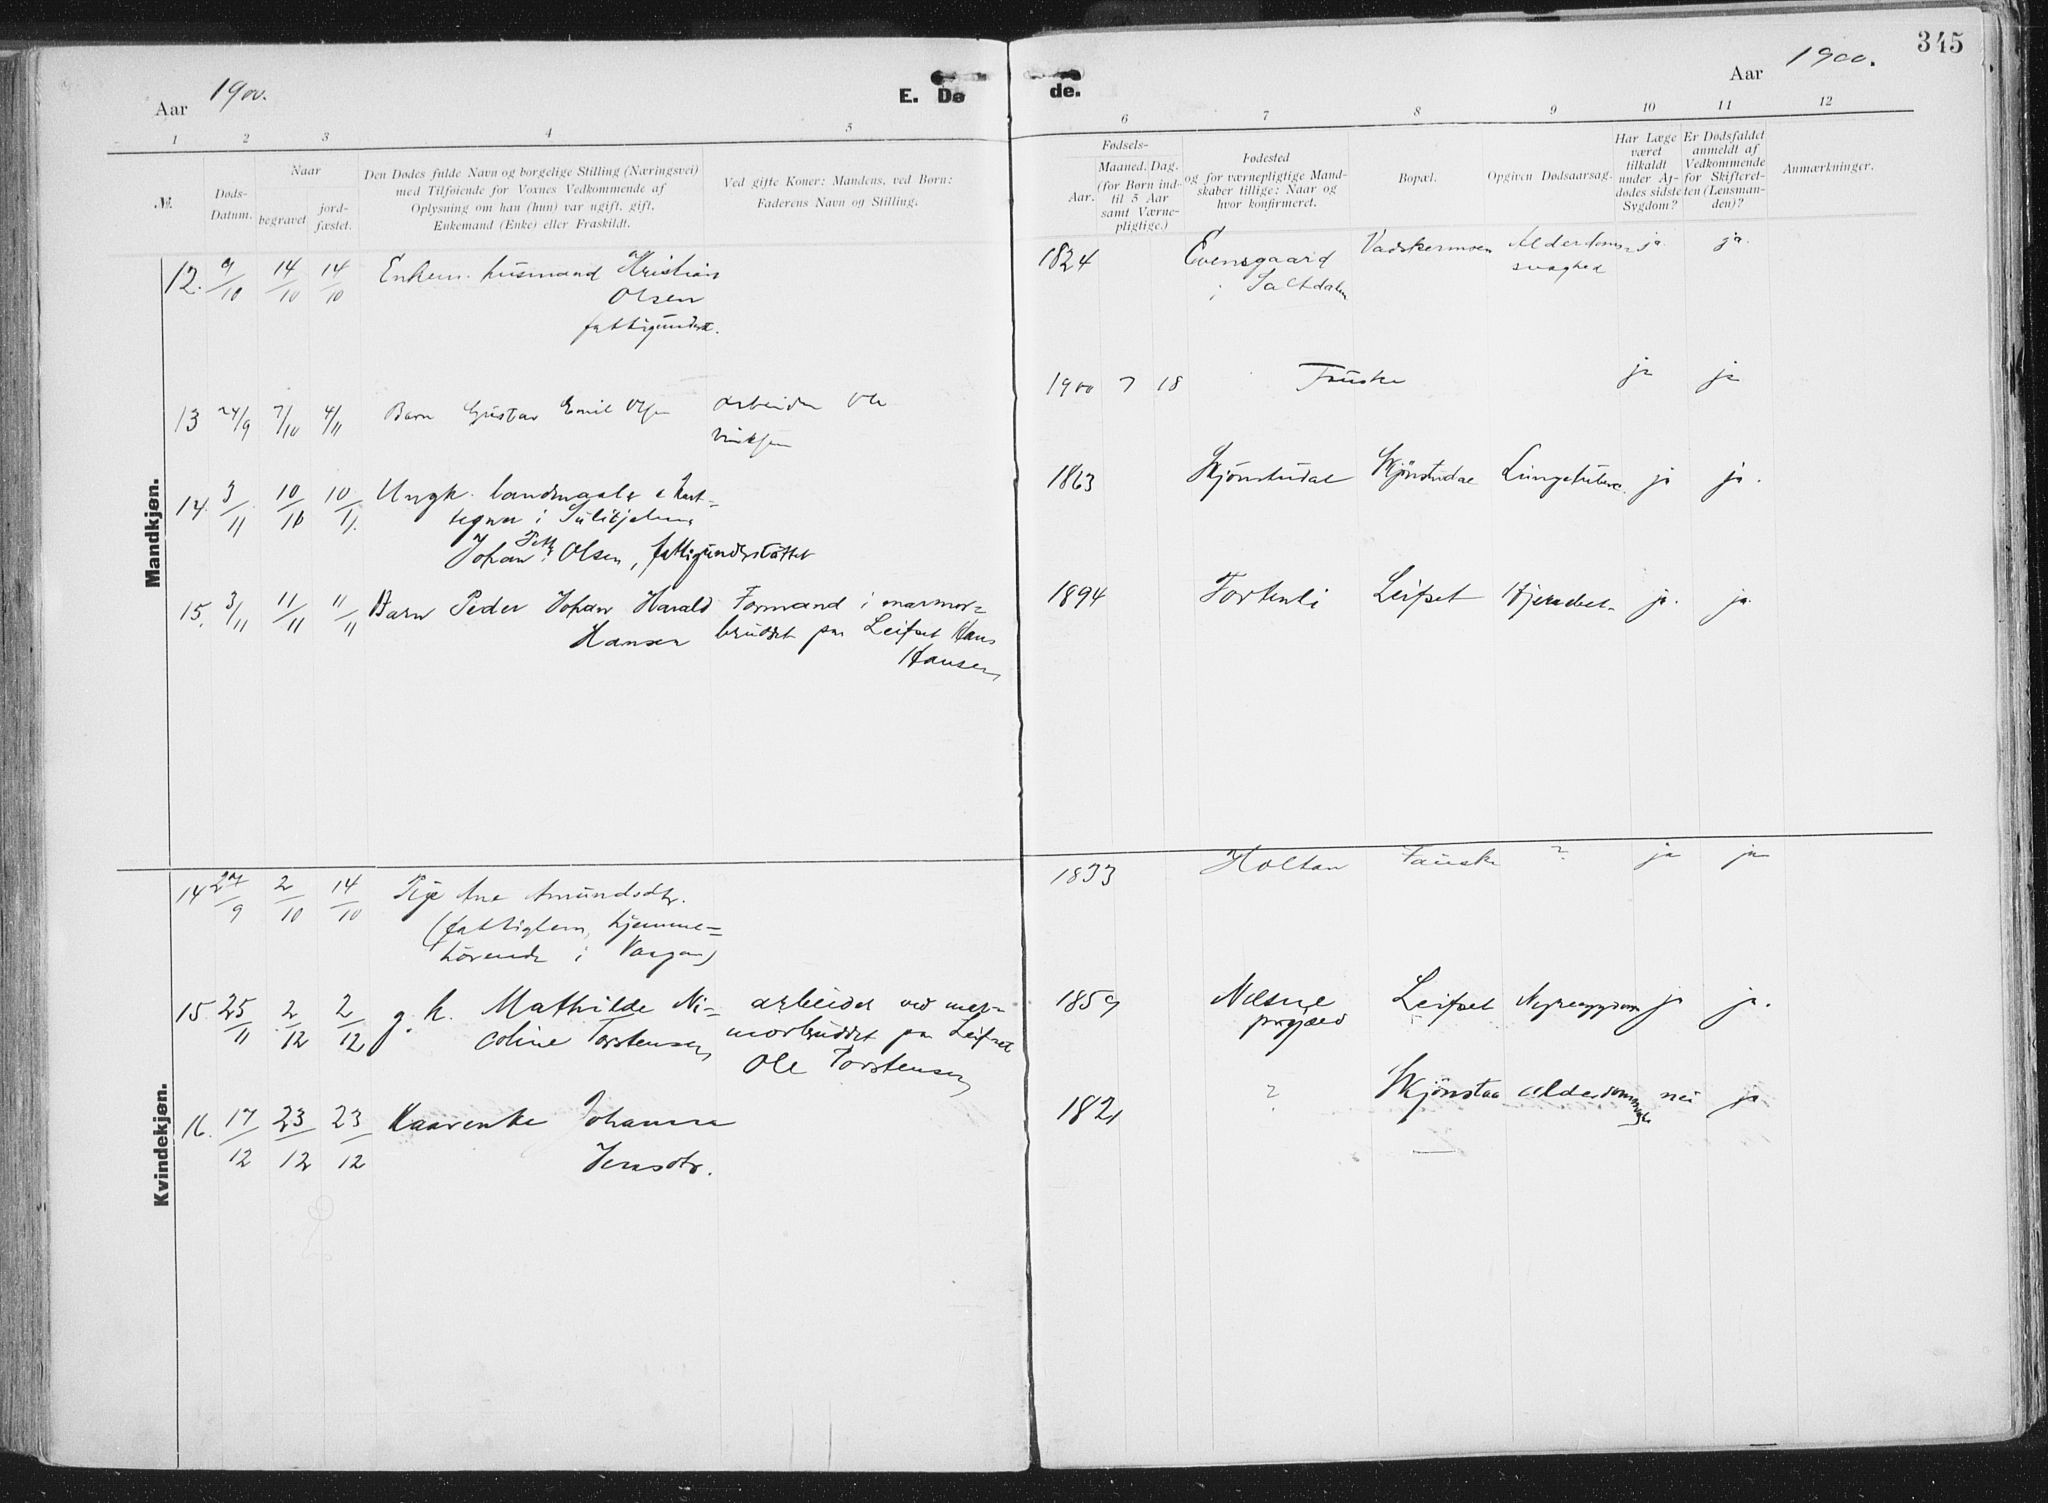 345
Aar 1900.
E. Dø de.
Aar 1900.
1 2 3 4 5 6 7 8 9 10 11 12
№.
Døds-
Datum.
Naar
begravet
jord-
fæstet.
Den Dødes fulde Navn og borgelige Stilling (Næringsvei)
med Tilføiende for Voxnes Vedkommende af
Oplysning om han (hun) var ugift, gift,
Enkemand (Enke) eller Fraskildt.
Ved gifte Koner: Mandens, ved Børn:
Faderens Navn og Stilling.
Fødsels-
Aar.
Maaned. Dag.
(for Børn ind-
til 5 Aar
samt Værne-
pligtige.)
Fødested
og for værnepligtige Mand-
skaber tillige: Naar og
hvor konfirmeret.
Bopæl.
Opgiven Dødsaarsag.
Har Læge
været
tilkaldt
under Af-
dødes sidste
Sygdom?
Er Dødsfaldet
anmeldt af
Vedkommende
for Skifteret-
ten (Lensman-
den)?
Anmærkninger.
Mandkjøn.
12. 9/10 14/10 14/10 Enkem. husmand Kristian
Olsen
fattigunderst.
1824 Evensgaard
i Saltdalen
Vadskermoen Alderdoms-
svaghed
ja. ja.
13 24/9 7/10 4/11 Barn Gustav Emil Olsen arbeider Ole
1900 7 18 Fauske ja ja
14. 3/11 10/10 10/11. Ungk. landmaaler & kart-
tegner i Sulitjelma
Johan Pett. Olsen, fattigunderstøttet
1863 Skjønstudal Skjønstudal Lungetuberc. ja ja.
15. 3/11 11/11 11/11 Barn Peder Johan Harald Formand i marmor-
Hansen bruddet paa Leifset Hans
Hansen
1894 Tortenli Leifset ja. ja.
Kvindekjøn.
14 27/9 2/10 14/10 Pige Ane Amundsdtr.
(fattiglem, hjemme-
hørende i Vaagan)
1833 Holtan Fauske ? ja ja
15. 25/11 2/12 2/12 g. k. Mathilde Ni- arbeider ved mar-
coline Torstensen morbruddet paa Leifset
Ole Torstensen
1859 Leifset Nyresygdom ja ja.
16. 17/12 23/12 23/12 Kaarenke Johanna
Jensdtr.
1821 ? Skjønstaa alderdomssvagh. nei ja